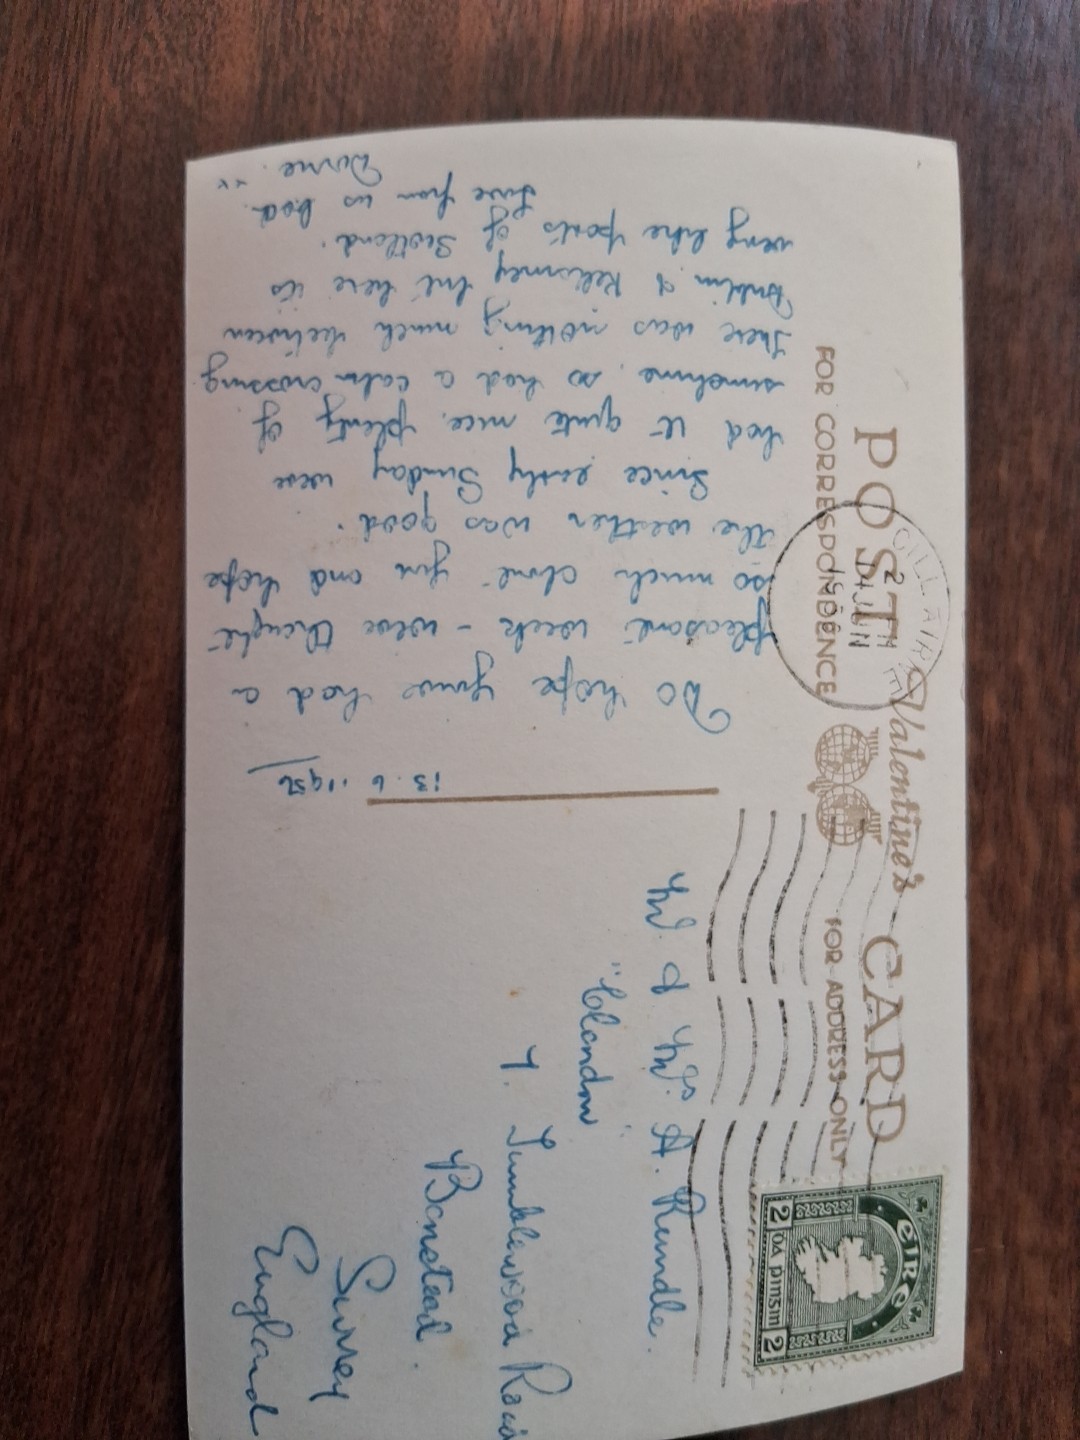 POST CARD
Valentine's
FOR CORRESPONDENCE
FOR ADDRESS ONLY
13.6.1956
Do hope youve had a
pleasant week – weve thought
so much about you and hope
the weather was good.
Since early Sunday weve
had it quite nice, plenty of
sunshine, so had a calm crossing
There was nothing much between
Dublin & Killarney but here its
very like parts of Scotland.
Love from us both
Mr & Mrs A. Rundle.
"Clandon"
7. Tumblewood Road
Banstead.
Surrey
England
CILL AIRNE
14 JUN
éire
2 DA PINSIN 2